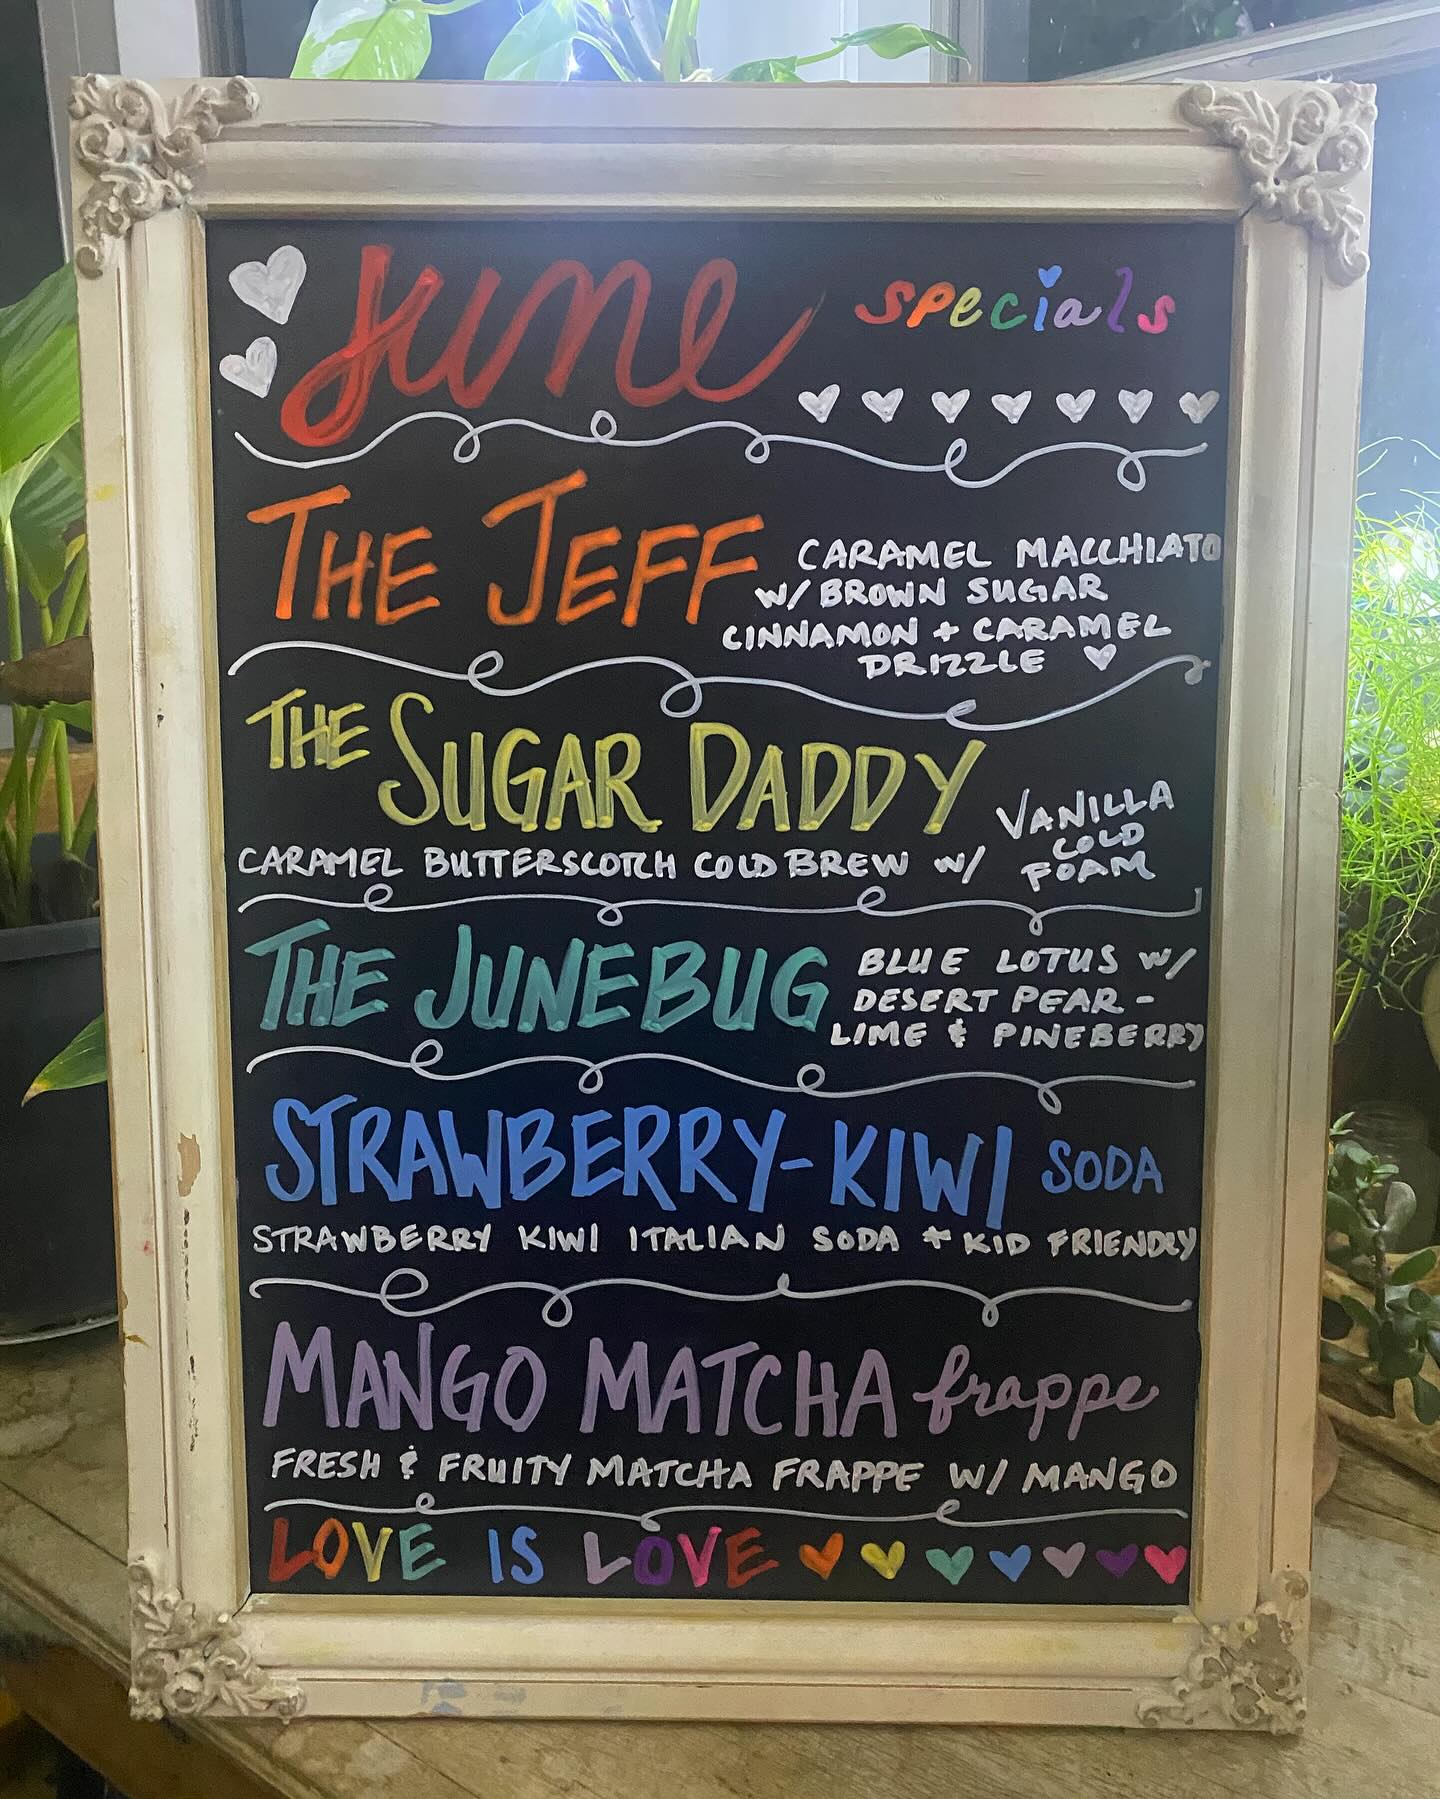 June specials
THE JEFF
CARAMEL MACCHIATO
W/ BROWN SUGAR
CINNAMON + CARAMEL
DRIZZLE
THE SUGAR DADDY
CARAMEL BUTTERSCOTCH COLD BREW W/
VANILLA
COLD
FOAM
THE JUNEBUG
BLUE LOTUS W/
DESERT PEAR -
LIME & PINEBERRY
STRAWBERRY-KIWI SODA
STRAWBERRY KIWI ITALIAN SODA * KID FRIENDLY
MANGO MATCHA frappe
FRESH & FRUITY MATCHA FRAPPE W/ MANGO
LOVE IS LOVE